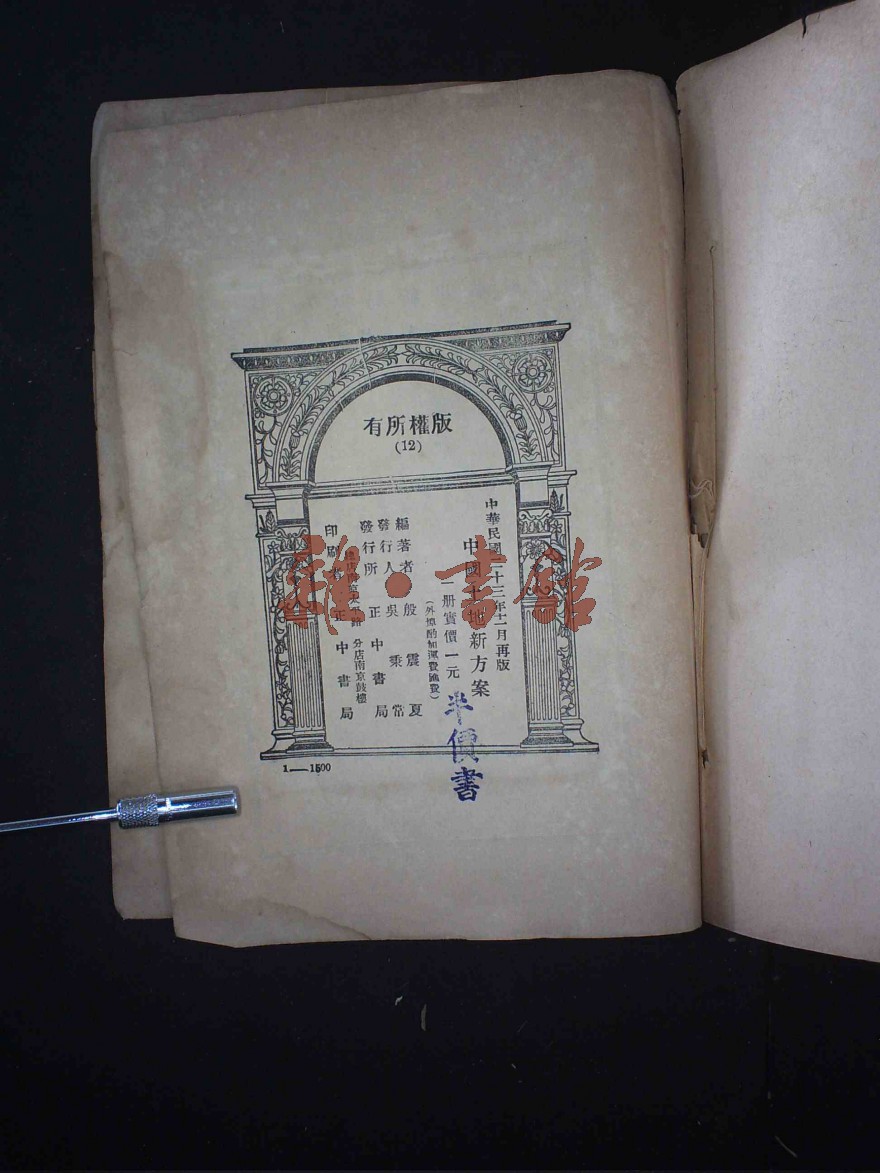 版權所有
(12)
中華民國二十三年十二月再版
中國土地新方案
一册實價一元
(外埠酌加運費匯費)
編著者 殷震夏
發行人 吳秉常
發行所 正中書局
南京太平路 分店南京鼓樓
印刷者 正中書局
1——1500
半價書
雜·書館